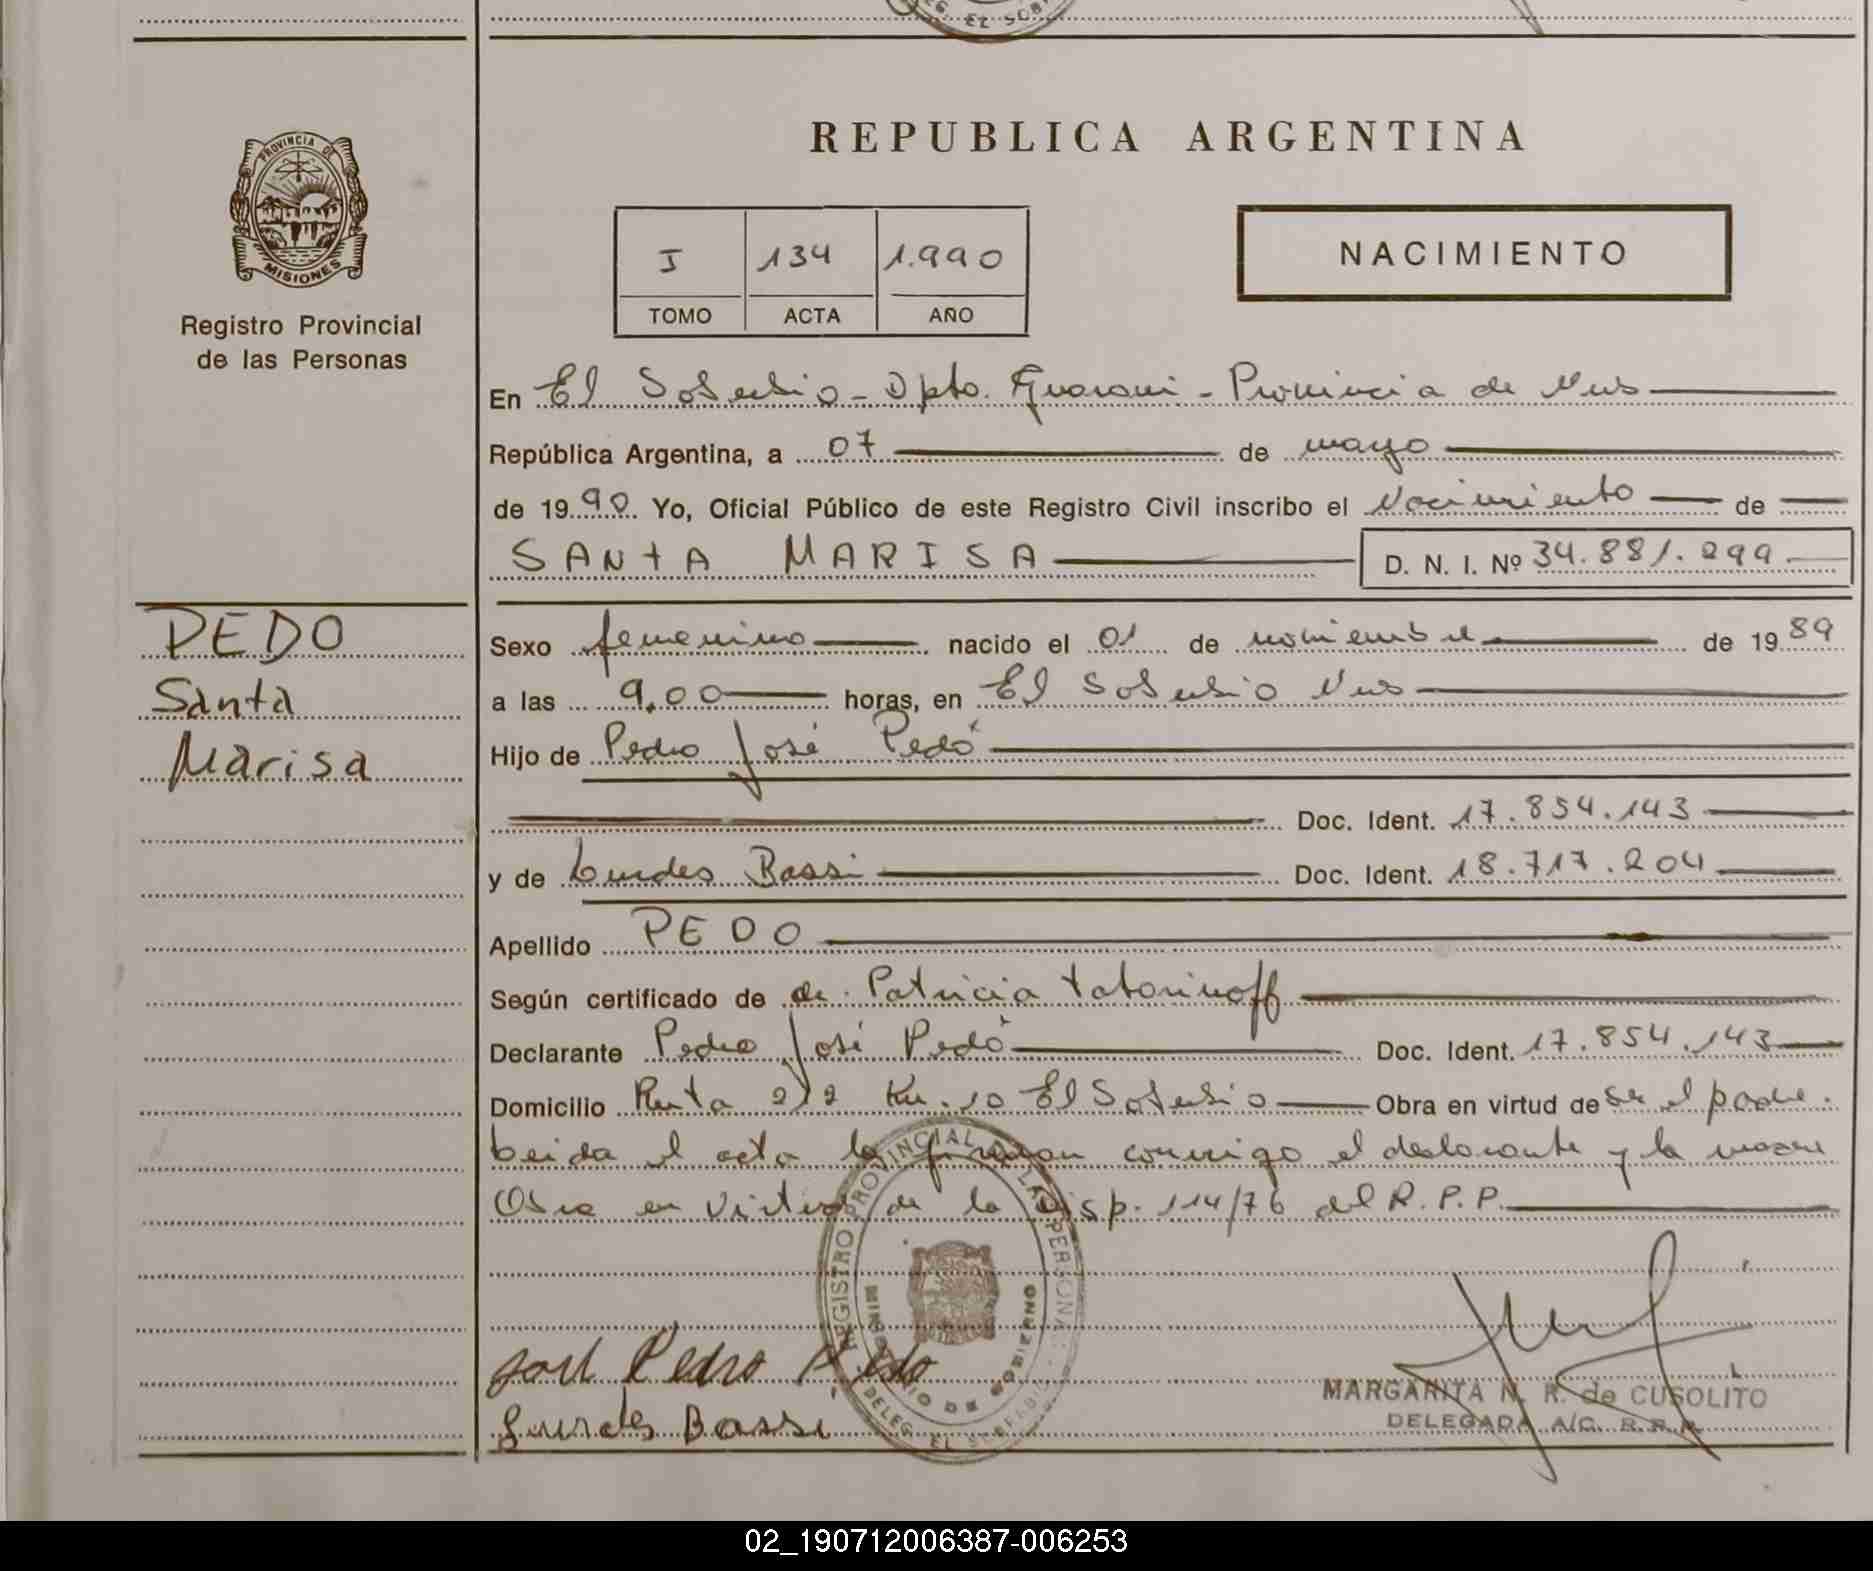 EG. EL SOB
PROVINCIA DE
MISIONES
Registro Provincial
de las Personas
REPUBLICA ARGENTINA
I 134 1.990
TOMO ACTA AÑO
NACIMIENTO
En El Soberbio - Dpto. Guarani - Provincia de Mnes
República Argentina, a 07 de mayo
de 1990 Yo, Oficial Público de este Registro Civil inscribo el Nacimiento de
SANTA MARISA D. N. I. Nº 34.881.299
PEDO
Santa
Marisa
Sexo femenino nacido el 01 de noviembre de 1989
a las 9.00 horas, en El Soberbio Mnes
Hijo de Pedro José Pedó
Doc. Ident. 17.854.143
y de Lurdes Bassi Doc. Ident. 18.717.204
Apellido PEDO
Según certificado de de Patricia Tatorinoff
Declarante Pedro José Pedó Doc. Ident. 17.854.143
Domicilio Ruta 212 Km. 10 El Soberbio Obra en virtud de ser el padre.
Leida el acta la firman conmigo el declarante y la madre
Obra en virtud de la Disp. 114/76 del R.P.P.
REGISTRO PROVINCIAL DE LAS PERSONAS
MINISTERIO DE GOBIERNO
DELEG. EL SOBERBIO
José Pedro Pedo
Lurdes Bassi
MARGARITA N. R. de CUSOLITO
DELEGADA A/C. R.P.P.
02_190712006387-006253